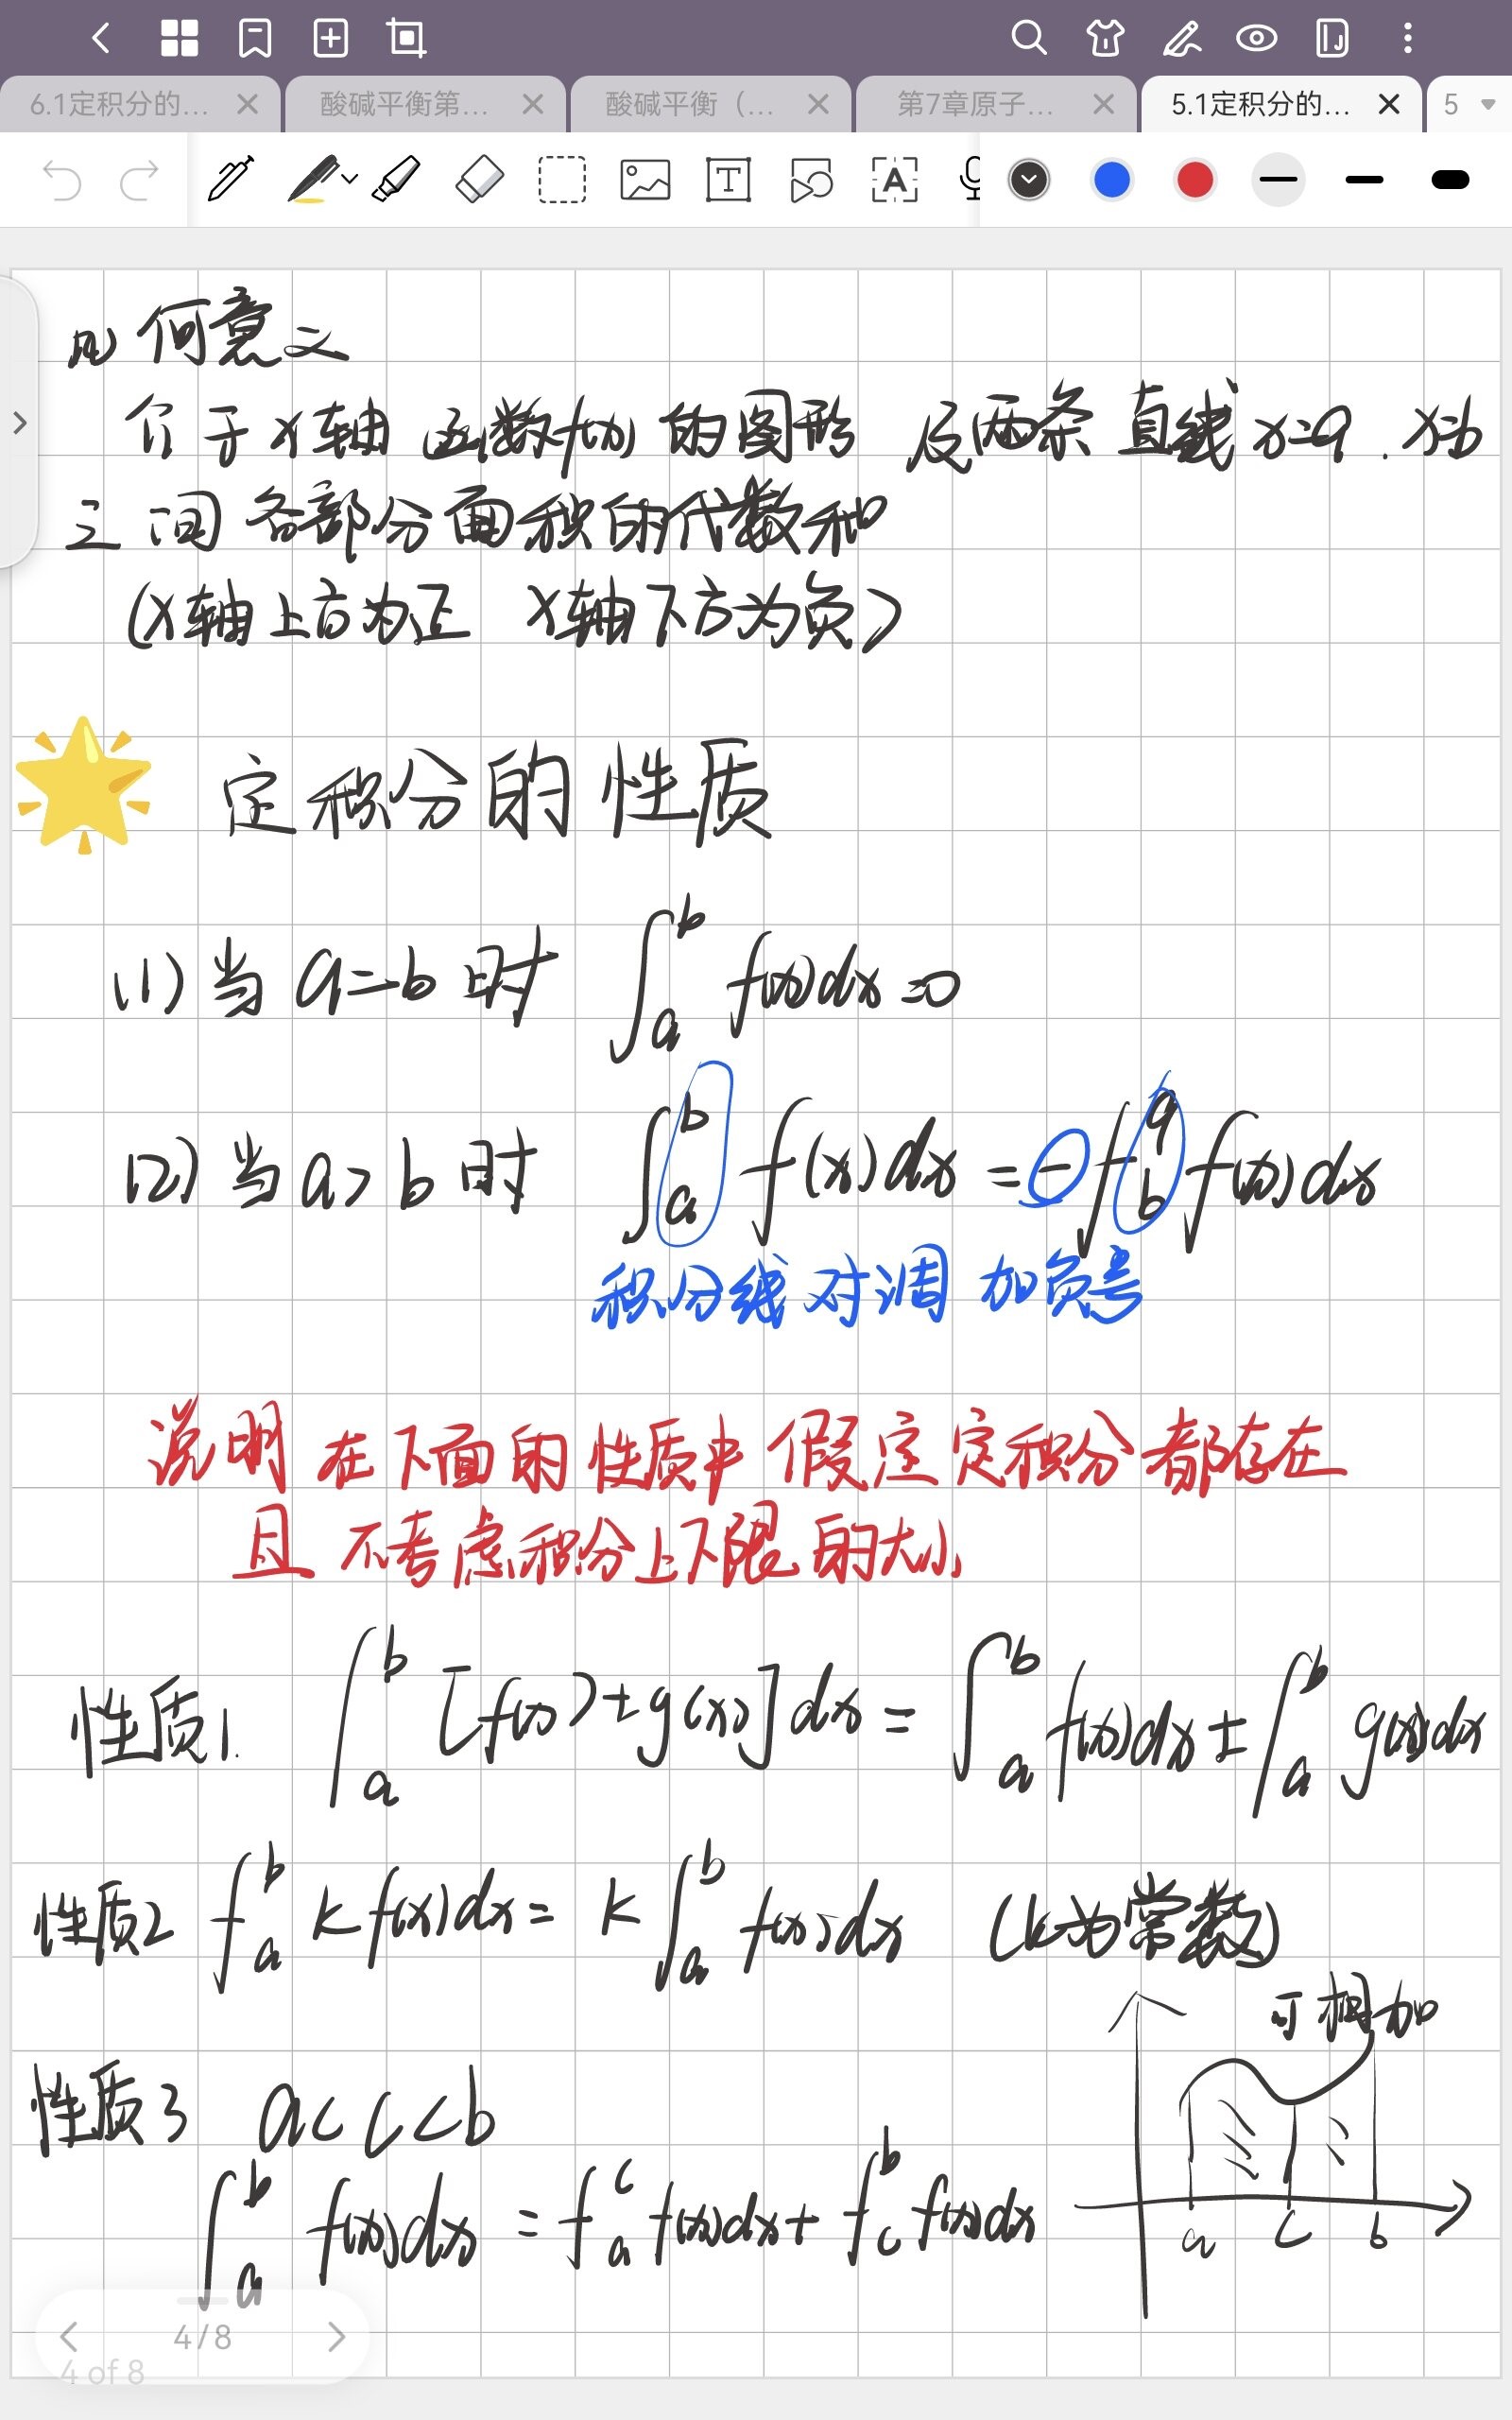 6.1定积分的... 酸碱平衡第... 酸碱平衡（... 第7章原子... 5.1定积分的... 5
几何意义
介于x轴 函数f(x)的图形 及两条直线x=a.x=b
之间各部分面积的代数和
(x轴上方为正 x轴下方为负)
定积分的性质
(1)当a=b时 ∫_a^b f(x)dx=0
(2)当a>b时 ∫_a^b f(x)dx=-∫_b^a f(x)dx
积分线对调 加负号
说明 在下面的性质中 假定定积分都存在
且 不考虑积分上下限的大小
性质1. ∫_a^b [f(x)±g(x)]dx=∫_a^b f(x)dx±∫_a^b g(x)dx
性质2 ∫_a^b kf(x)dx=k∫_a^b f(x)dx (k为常数)
可相加
性质3 a<c<b
∫_a^b f(x)dx=∫_a^c f(x)dx+∫_c^b f(x)dx
a c b
4/8
4 of 8